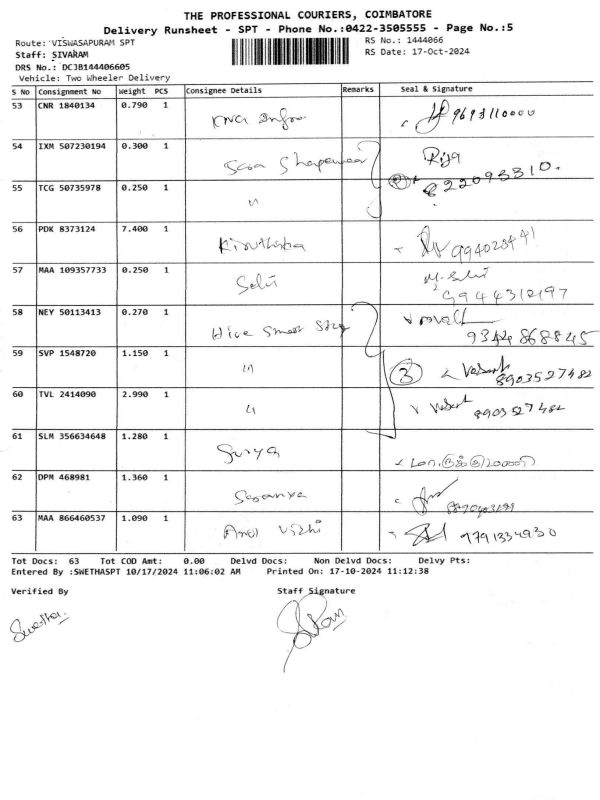 THE PROFESSIONAL COURIERS, COIMBATORE
Delivery Runsheet - SPT - Phone No.:0422-3505555 - Page No.:5
Route: VISWASAPURAM SPT RS No.: 1444066
Staff: SIVARAM RS Date: 17-Oct-2024
DRS No.: DCJB144406605
Vehicle: Two Wheeler Delivery
S No Consignment No Weight PCS Consignee Details Remarks Seal & Signature
53 CNR 1840134 0.790 1 9698110000
54 IXM 507230194 0.300 1 Riya
55 TCG 50735978 0.250 1 " 822093310.
56 PDK 8373124 7.400 1 Kiruthika
57 MAA 109357733 0.250 1 Selvi M. Selvi
9944312197
58 NEY 50113413 0.270 1 Hive Smart
9344868845
59 SVP 1548720 1.150 1 " 3 Vasanth
8903527482
60 TVL 2414090 2.990 1 " Vasanth 8903527482
61 SLM 356634648 1.280 1 Surya
62 DPM 468981 1.360 1 Saranya
63 MAA 866460537 1.090 1 Arul Vizhi 9791334930
Tot Docs: 63 Tot COD Amt: 0.00 Delvd Docs: Non Delvd Docs: Delvy Pts:
Entered By :SWETHASPT 10/17/2024 11:06:02 AM Printed On: 17-10-2024 11:12:38
Verified By Staff Signature
Swetha.